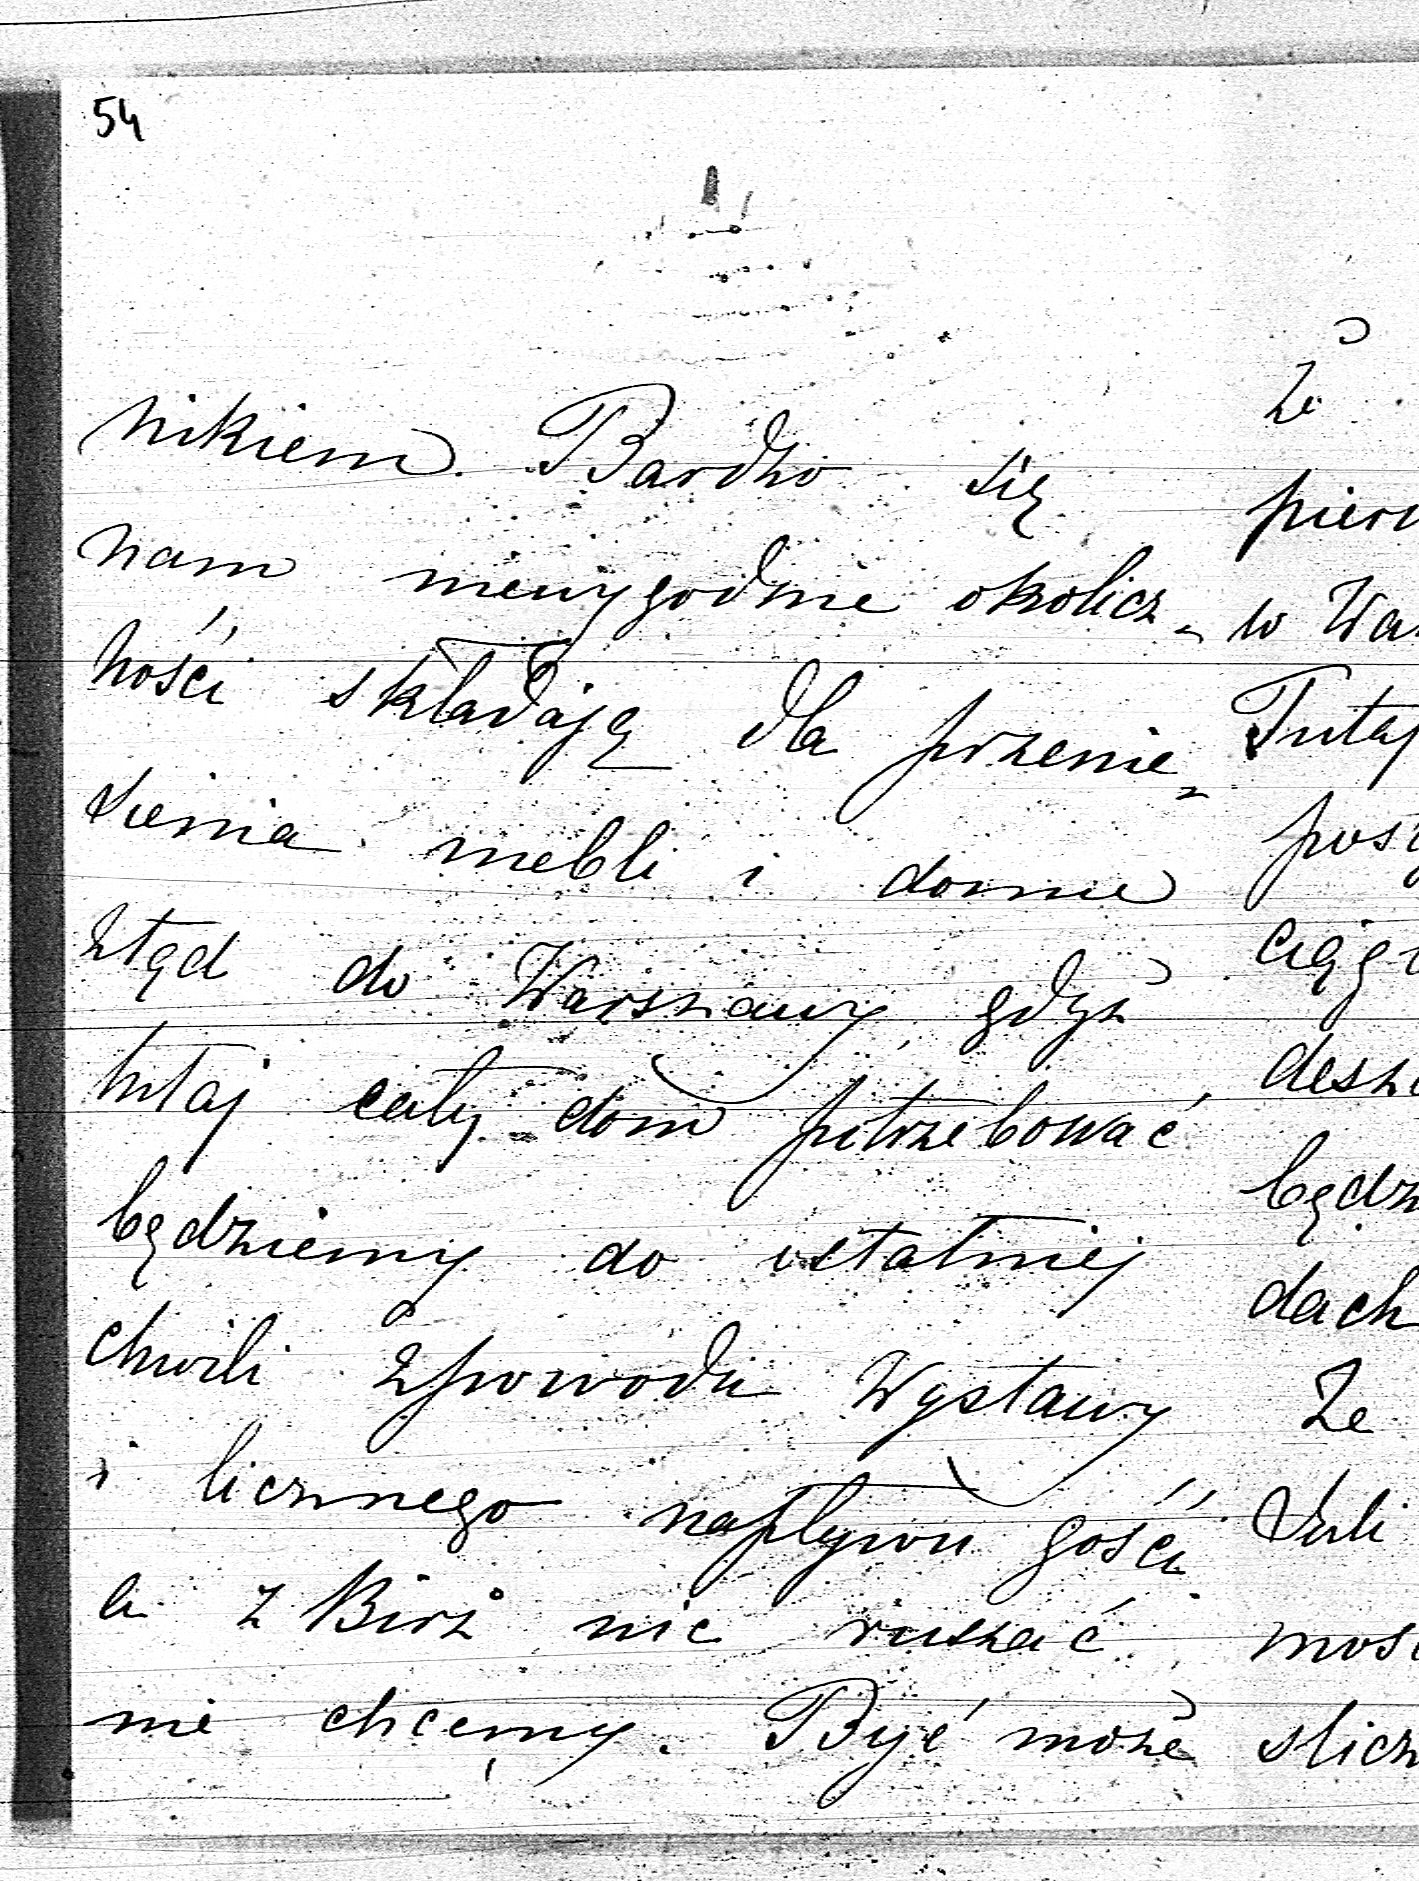 54
nikiem. Bardzo się
nam niewygodnie okolicz-
ności składają dla przenie-
sienia mebli i
ztąd do Warszawy, gdyż
tutaj cały dom potrzebować
będziemy do ostatniej
chwili z powodu Wystawy
i licznego napływu gości
a z Birż nic ruszać
nie chcemy. Być może
że
pierw
w War
Tutaj
posi
ciągl
deszc
będz
dach
że
żeli
mos
slicz